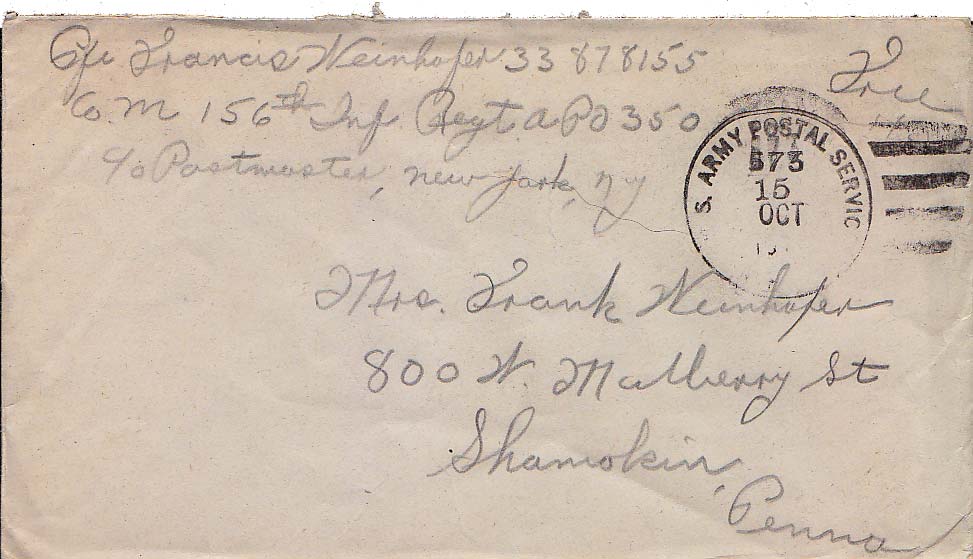 Pfc Francis Weinhofer 33 878155
Free
Co. M 156th Inf Regt APO 350
c/o Postmaster, new york, ny
S. ARMY POSTAL SERVIC
573
15
OCT
Mrs. Frank Weinhofer
800 W. Mulberry St
Shamokin,
Penna